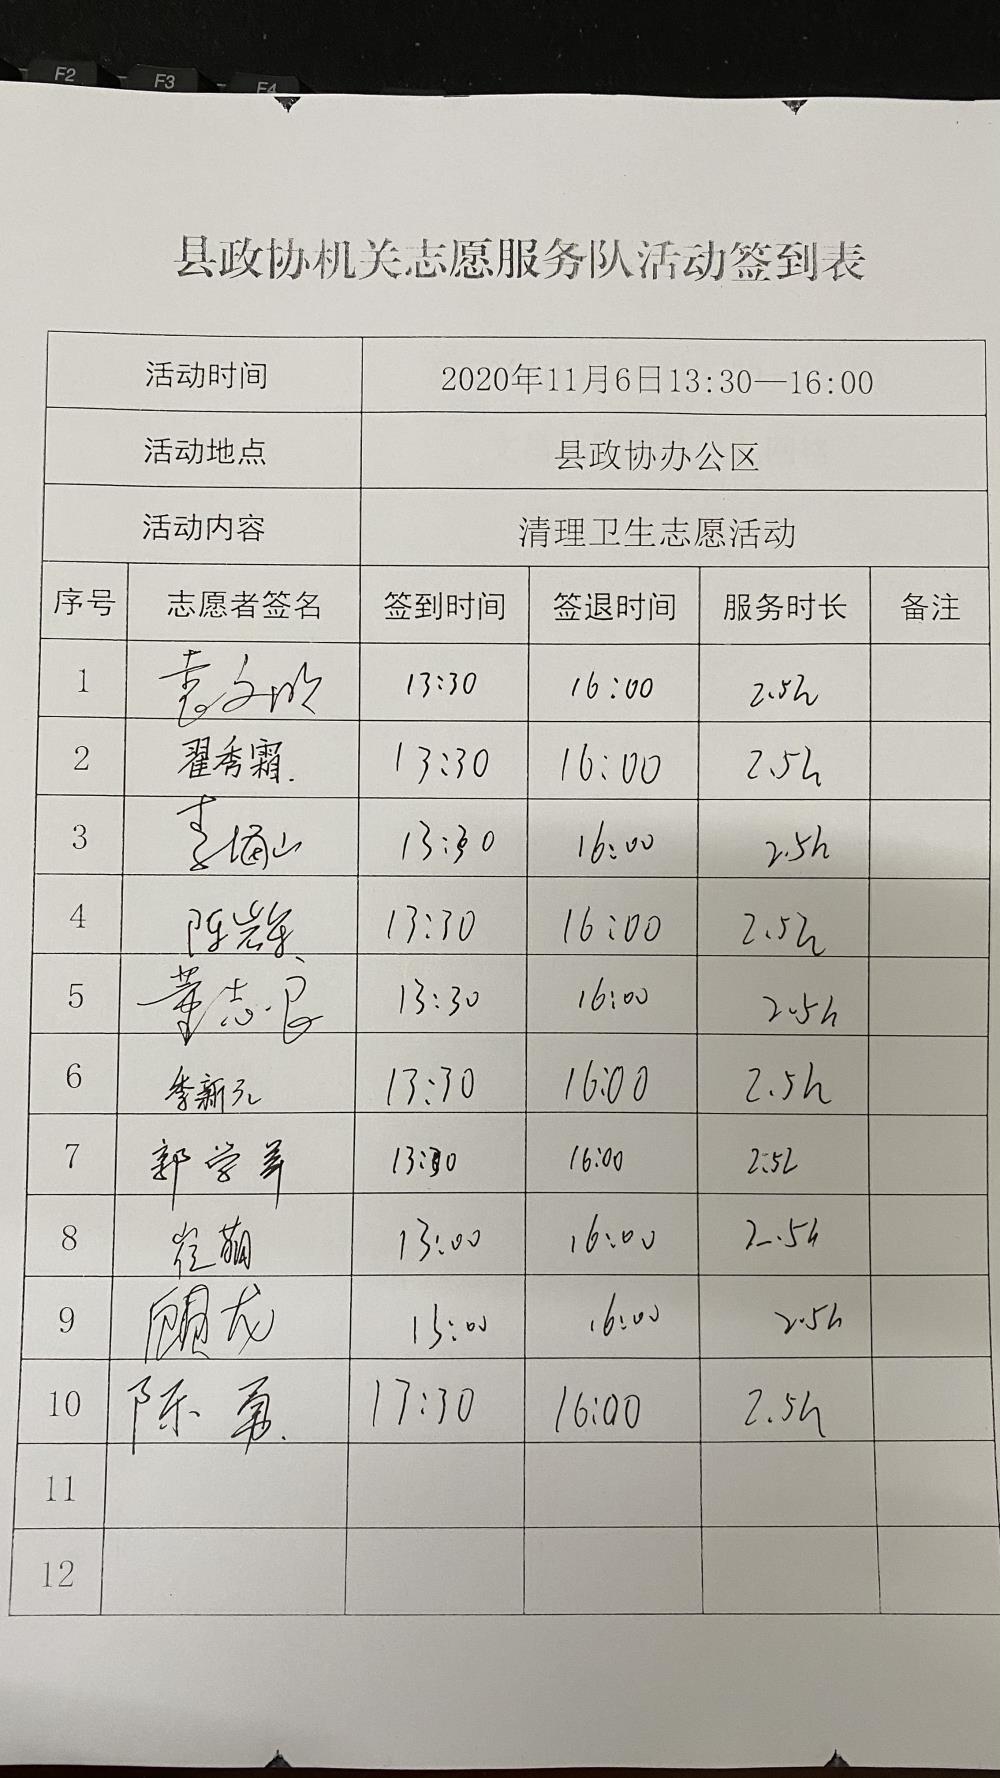 F2 F3 F4
县政协机关志愿服务队活动签到表
活动时间 2020年11月6日13:30—16:00
活动地点 县政协办公区
活动内容 清理卫生志愿活动
序号 志愿者签名 签到时间 签退时间 服务时长 备注
1 袁文 13:30 16:00 2.5h
2 翟秀霜. 13:30 16:00 2.5h
3 李 山 13:30 16:00 2.5h
4 陈岩 13:30 16:00 2.5h
5 董志良 13:30 16:00 2.5h
6 季新元 13:30 16:00 2.5h
7 郭学 13:30 16:00 2.5h
8 崔萌 13:00 16:00 2.5h
9 顾龙 13:00 16:00 2.5h
10 陈勇. 17:30 16:00 2.5h
11
12